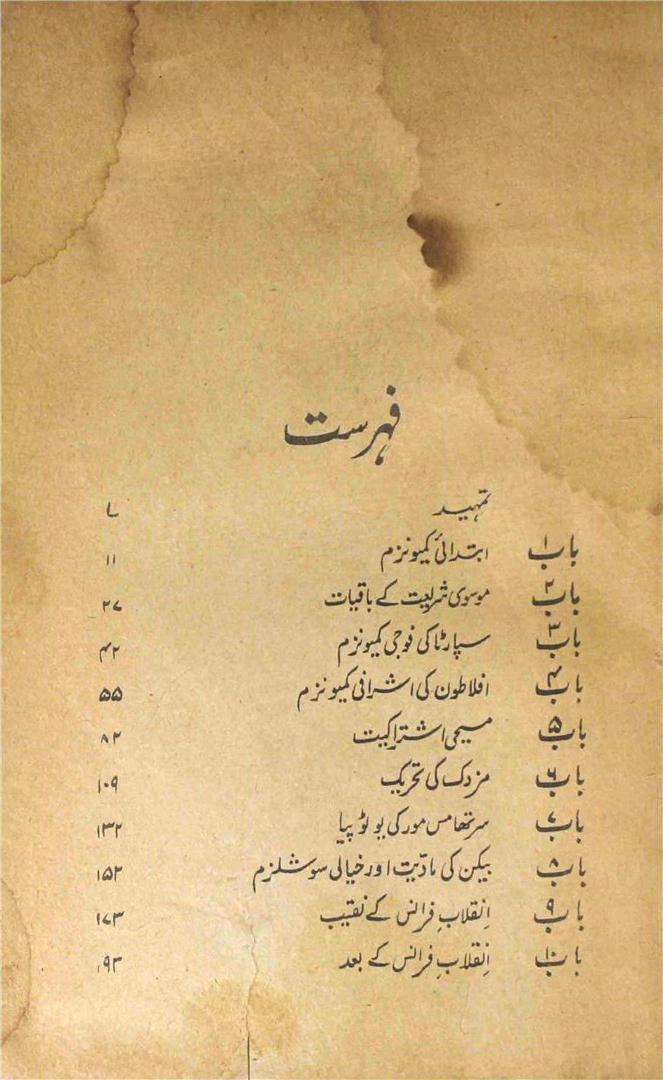 فہرست
تمہید ۷
باب ۱ ابتدائی کمیونزم ۱۱
باب ۲ موسوی شریعت کے باقیات ۲۷
باب ۳ سپارٹا کی فوجی کمیونزم ۴۲
باب ۴ افلاطون کی اشرافی کمیونزم ۵۵
باب ۵ مسیحی اشتراکیت ۸۲
باب ۶ مزدک کی تحریک ۱۰۹
باب ۷ سر تھامس مور کی یوٹوپیا ۱۳۲
باب ۸ بیکن کی مادّیت اور خیالی سوشلزم ۱۵۲
باب ۹ اِنقلابِ فرانس کے نقیب ۱۷۳
باب ۱۰ اِنقلابِ فرانس کے بعد ۱۹۳